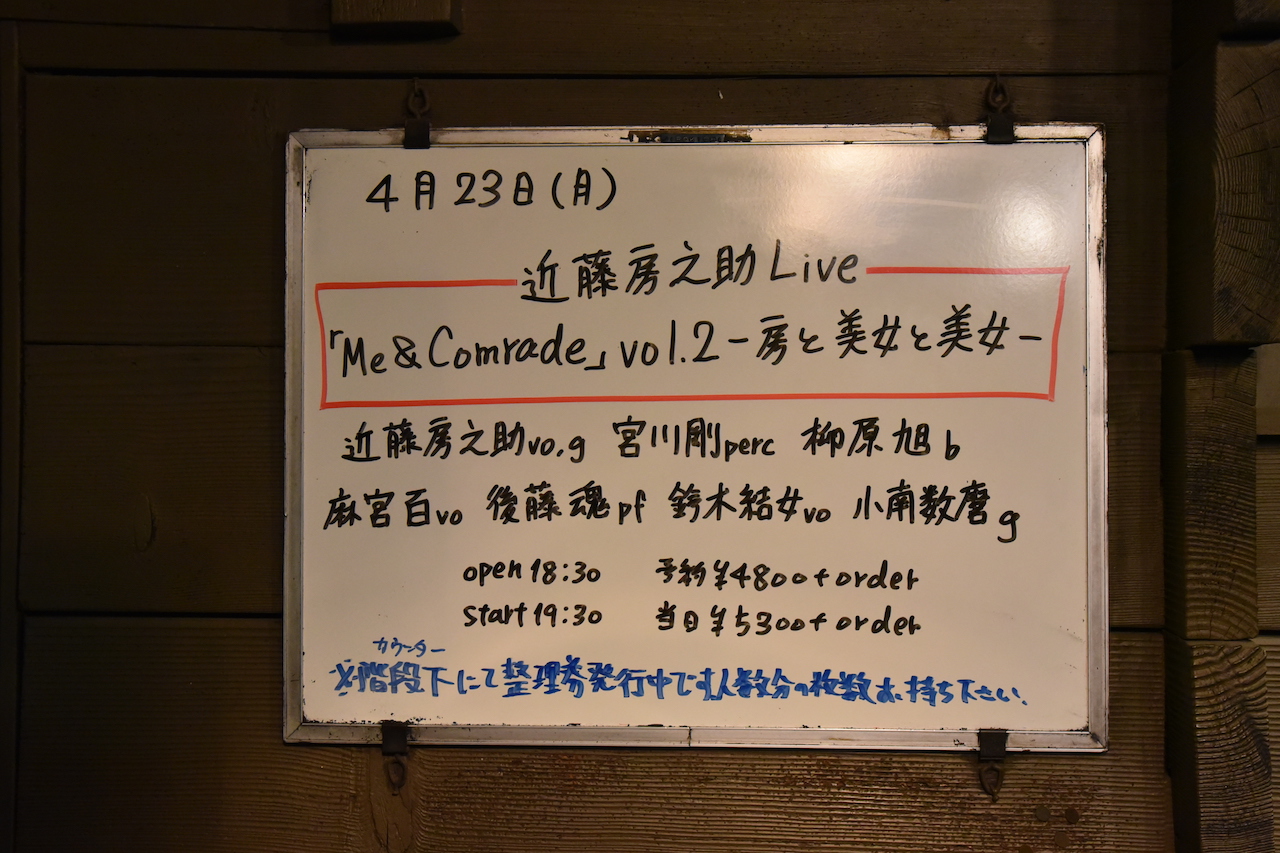 4月23日(月)
近藤房之助Live
「Me&Comrade」vol.2-房と美女と美女-
近藤房之助vo.g 宮川剛perc 柳原旭b
麻宮百vo 後藤魂pf 鈴木結女vo 小南数麿g
open18:30 予約¥4800+order
start19:30 当日¥5300+order
カウンター
※階段下にて整理券発行中です人数分の枚数お持ち下さい.